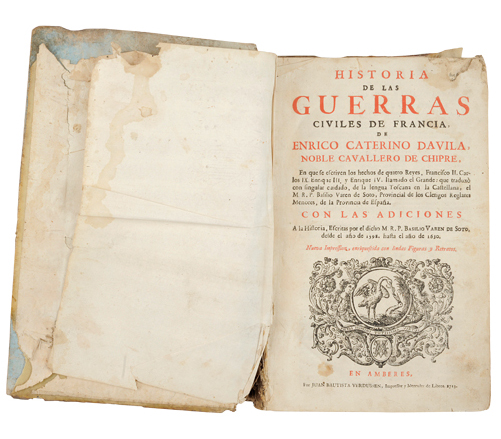 HISTORIA
DE LAS
GUERRAS
CIVILES DE FRANCIA,
DE
ENRICO CATERINO DAVILA,
NOBLE CAVALLERO DE CHIPRE,
En que se escriven los hechos de quatro Reyes, Francisco II. Car-
los IX. Enrique III. y Enrique IV. llamado el Grande: que traduxó
con singular cuidado, de la lengua Toscana en la Castellana, el
M. R. P. Basilio Varen de Soto, Provincial de los Clerigos Reglares
Menores, de la Provincia de España.
CON LAS ADICIONES
A la Historia, Escritas por el dicho M. R. P. BASILIO VAREN DE SOTO,
desde el año de 1598. hasta el año de 1630.
Nueva Impression, enriquezida con lindas Figuras y Retratos.
EN AMBERES,
Por JUAN BAUTISTA VERDUSSEN, Impressor y Mercader de Libros. 1713.